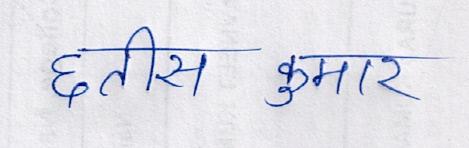 छतीस कुमार